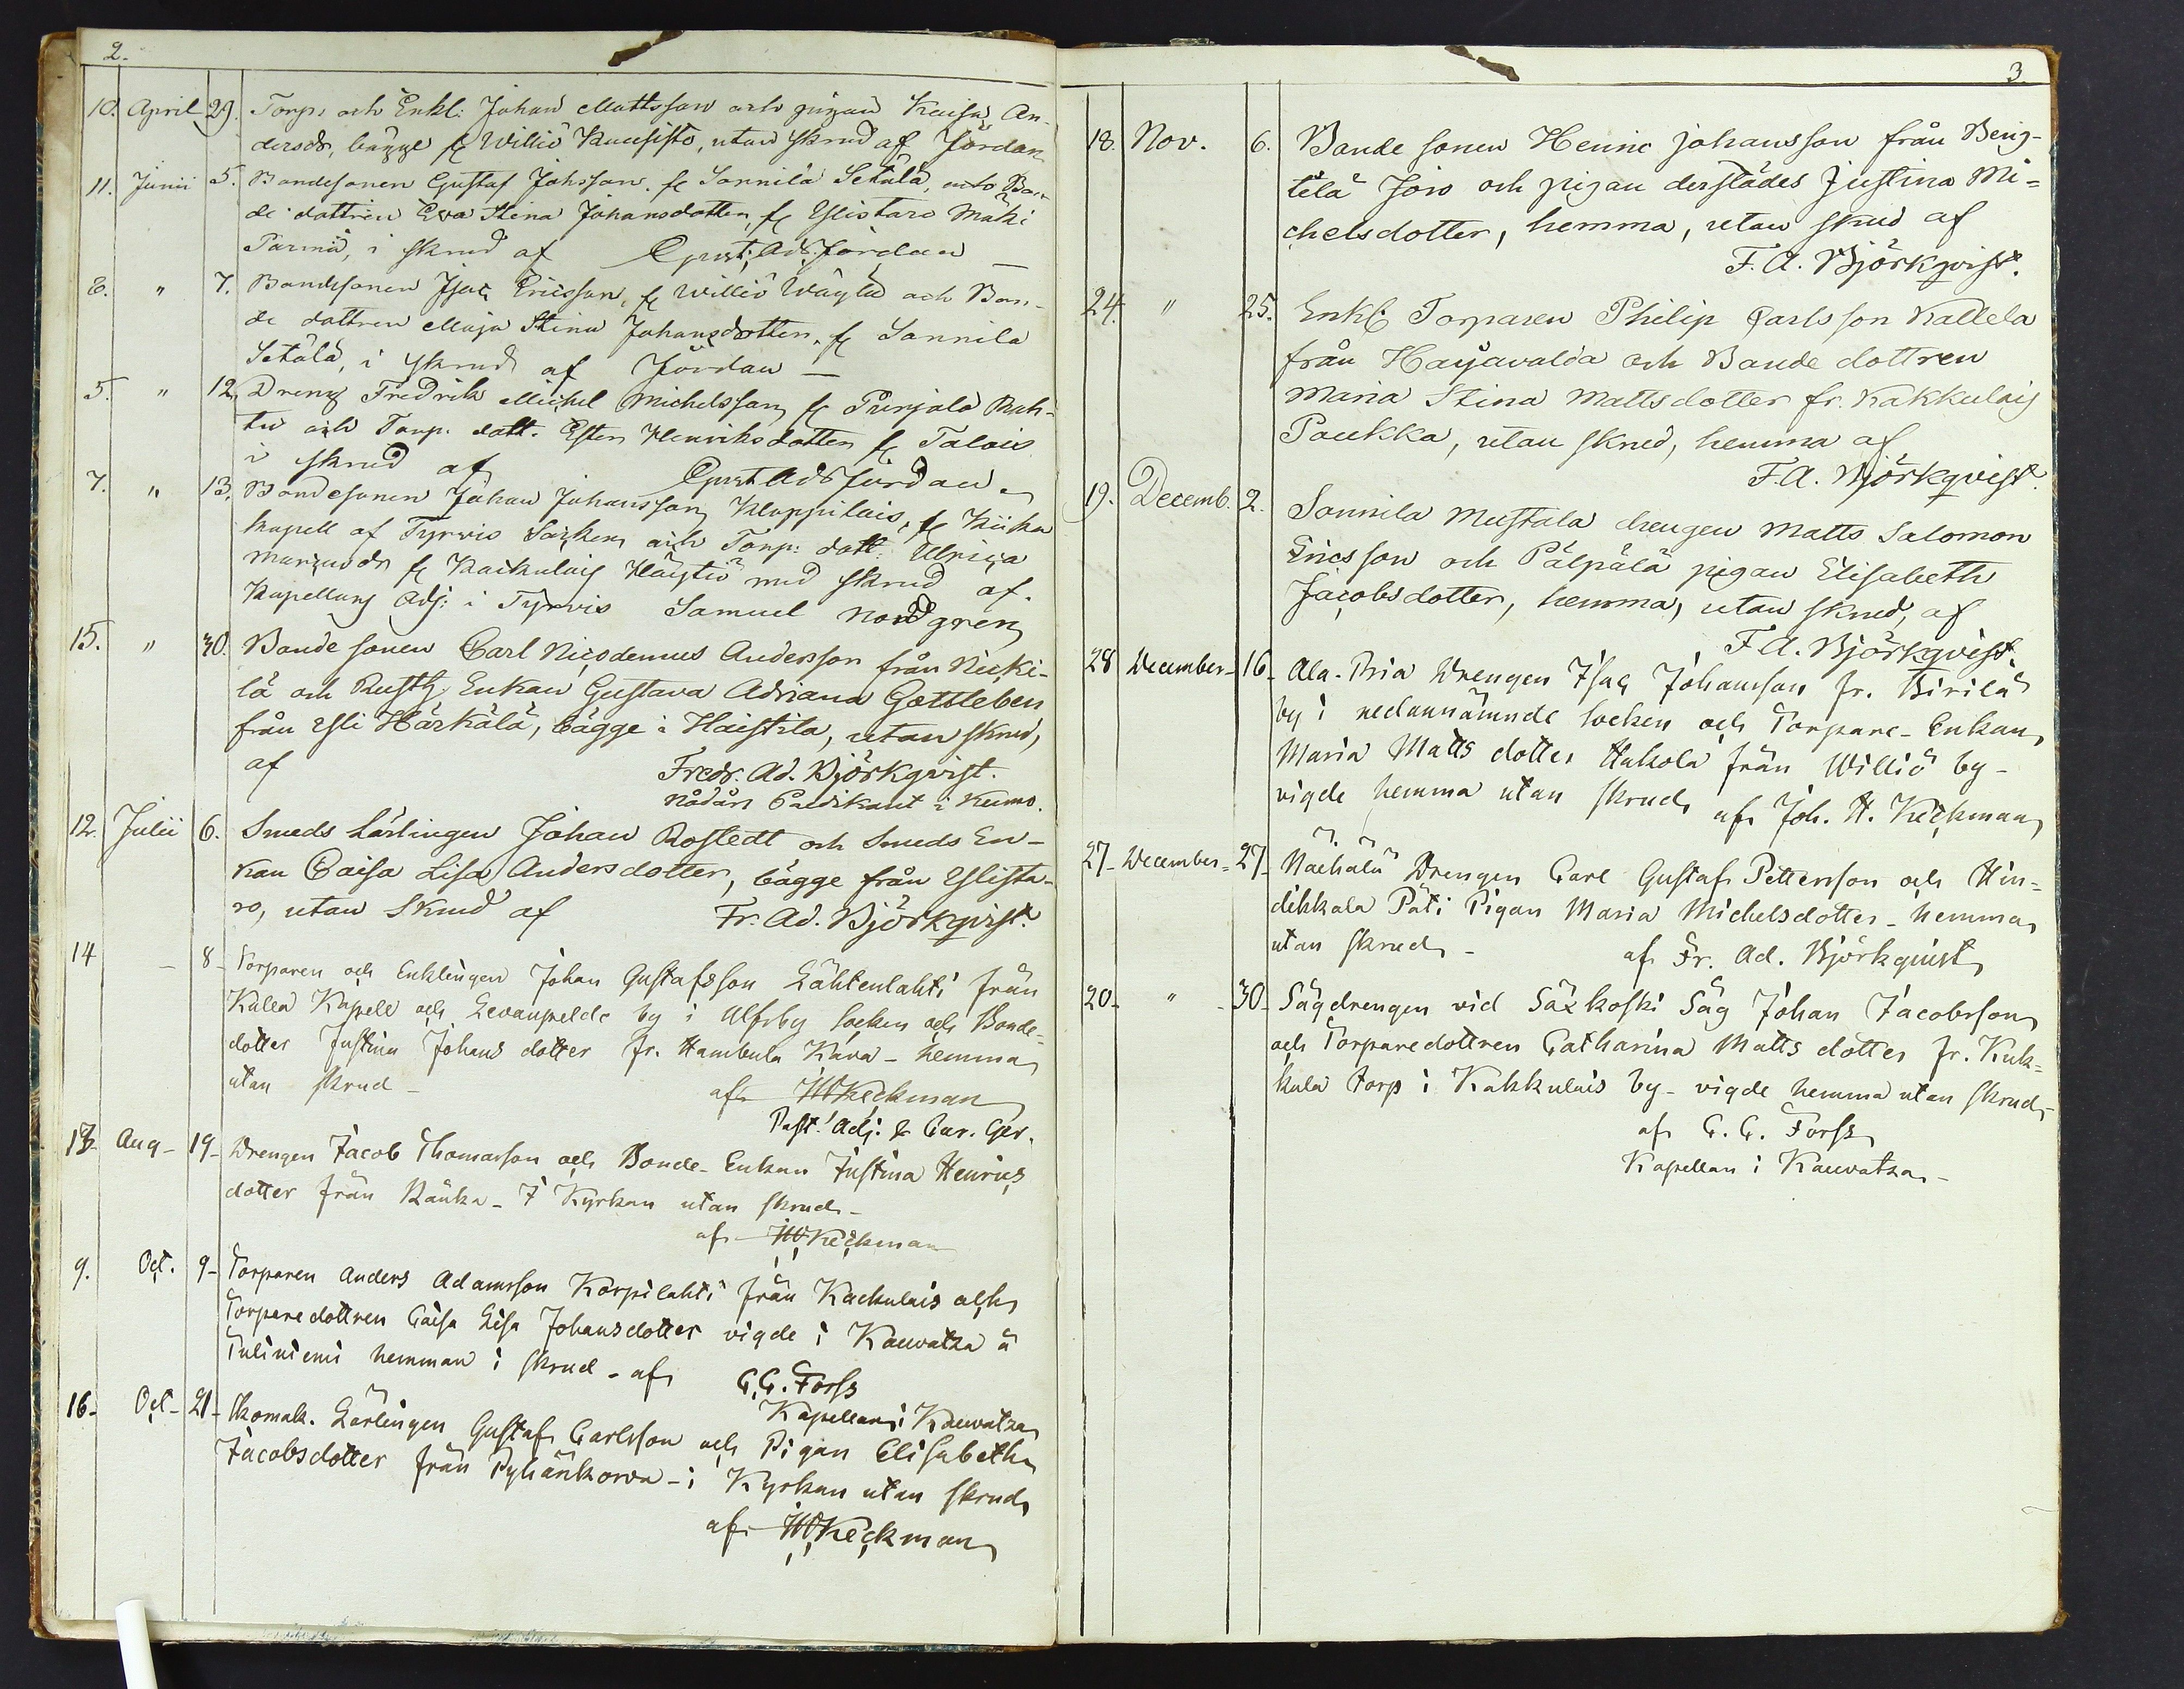 2.
10. April 29. Torp. och Enkl: Johan Mattsson och pigan Kaisa An-
dersdr, bägge fr Williö Kuusisto, utan skrud af Jördan
11. Junii 5. Bondesonen Gustaf Johsson fr Sonnila Setälä, och Bon-
de dottren Eva Stina Johansdotter, fr Ylistaro Mäki
Pärmä, i skrud af Gust: Ad: Jördan
8. " 7. Bondesonen Isac Ericsson, fr Williö Wäytü och Bon-
de dottren Maja Stina Johansdotter, fr Sonnila
Setälä, i skrud af Jördan
5. " 12. Dreng Fredrik Michel Michelsson fr Purjala Rah-
tu och Torp. dott. Ester Henriksdotter fr Talois
i skrud af Gust Ad Jördan
7. " 13. Bondesonen Johan Johansson Kloppilais, fr Kiika
kapell af Tyrvis Socken och Torp: dott: Ulrica
Marcusdr fr Kackulais Häytiö med skrud af
Kapellans Adj: i Tyrvis Samuel Nordgren
15. " 30. Bonde sonen Carl Nicodemus Andersson från Nicki-
lä och Rusth. Enkan Gustava Adriana Gottleben
från Yli Härkälä, bägge i Haistila, utan skrud,
af Fredr. Ad. Björkqvist.
Nådårs Prædikant i Kumo.
12. Julii 6. Smeds Lärlingen Johan Rostedt och Smeds En-
kan Caisa Lisa Andersdotter, bägge från Ylista-
ro, utan Skrud af Fr. Ad. Björkqvist.
14 - 8- Torparen och Enklingen Johan Gustafsson Lähtenlahti från
Kulla Kapell och Levanpelde by i Ulfsby Socken och Bonde-
dotter Justina Johans dotter fr. Hambula Kava - hemma
utan skrud - af JWKeckman
Past. Adj. & Cur. Ger.
13- Aug - 19- Drengen Jacob Thomasson och Bonde-Enkan Justina Henrics
dotter från Ränka - I Kyrkan utan skrud -
af JWKeckman
9. Oct. 9- Torparen Anders Adamsson Korpilahti från Kackulais och
Torparedottren Caisa Lisa Johansdotter vigde i Kauvatsa å
Tuliniemi hemman i skrud - af C. G. Forss
Kapellan i Kauvatsa
16- Oct- 21- Skomak. Lärlingen Gustaf Carlsson och Pigan Elisabeth
Jacobsdotter från Pyhänkorva - i Kyrkan utan skrud
af JWKeckman
3.
18. Nov. 6. Bonde sonen Henric Johansson från Beng-
tilä Jöns och pigan derstädes Justina Mi-
chelsdotter, hemma, utan skrud af
F. A. Björkqvist.
24. " 25. Enkl: Torparen Philip Carlsson Kallela
från Hayavalda och Bonde dottren
Maria Stina Mattsdotter fr. Kakkulais
Paukka, utan skrud, hemma af
F. A. Björkqvist.
19. Decemb. 2. Sonnila Mustala drengen Matts Salomon
Ericsson och Pälpälä pigan Elisabeth
Jacobsdotter, hemma, utan skrud, af
F. A. Björkqvist.
28 December- 16- Ala-Pria Drengen Isac Johansson fr. Birilä
by i nedannämnde Socken och Torpare-Enkan
Maria Matts dotter Hakola från Williö by -
vigde hemma utan skrud af Joh. W. Keckman
27- December- 27- Näckälä Drengen Carl Gustaf Pettersson och Hin-
dikkala Päti Pigan Maria Michelsdotter - hemma
utan skrud - af Fr. Ad. Björkquist
20- " - 30- Sågdrengen vid Säxkoski Såg Johan Jacobsson
och Torparedottren Catharina Matts dotter fr. Kuk-
kula torp i Kakkulais by - vigde hemma utan skrud -
af C. G. Forss
Kapellan i Kauvatsa -